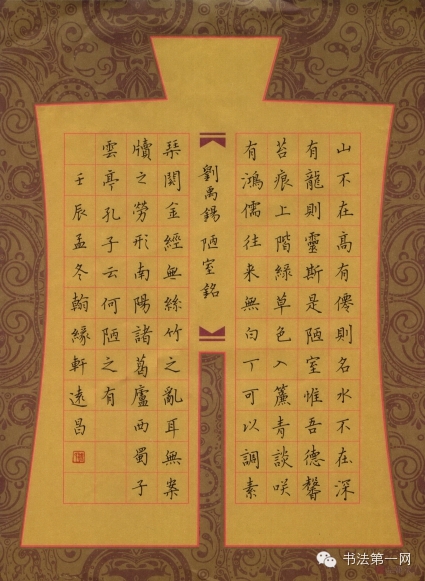 山不在高有僊則名水不在深
有龍則靈斯是陋室惟吾德馨
苔痕上階綠草色入簾青談咲
有鴻儒往来無白丁可以調素
劉禹錫陋室銘
琴閱金經無絲竹之亂耳無案
牘之勞形南陽諸葛廬西蜀子
雲亭孔子云何陋之有
壬辰孟冬翰緣軒遠昌
书法第一网